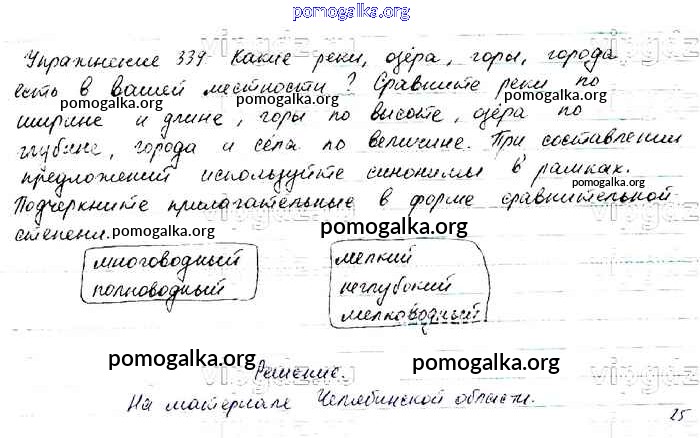 pomogalka.org
Упражнение 339. Какие реки, озёра, горы, города
есть в вашей местности? Сравните реки по
pomogalka.org pomogalka.org pomogalka.org
ширине и длине, горы по высоте, озёра по
глубине, города и сёла по величине. При составлении
предложений используйте синонимы в рамках.
pomogalka.org
Подчеркните прилагательные в форме сравнительной
степени.
pomogalka.org
многоводный
полноводный
мелкий
неглубокий
мелководный
pomogalka.org pomogalka.org
Решение.
На материале Челябинской области.
25